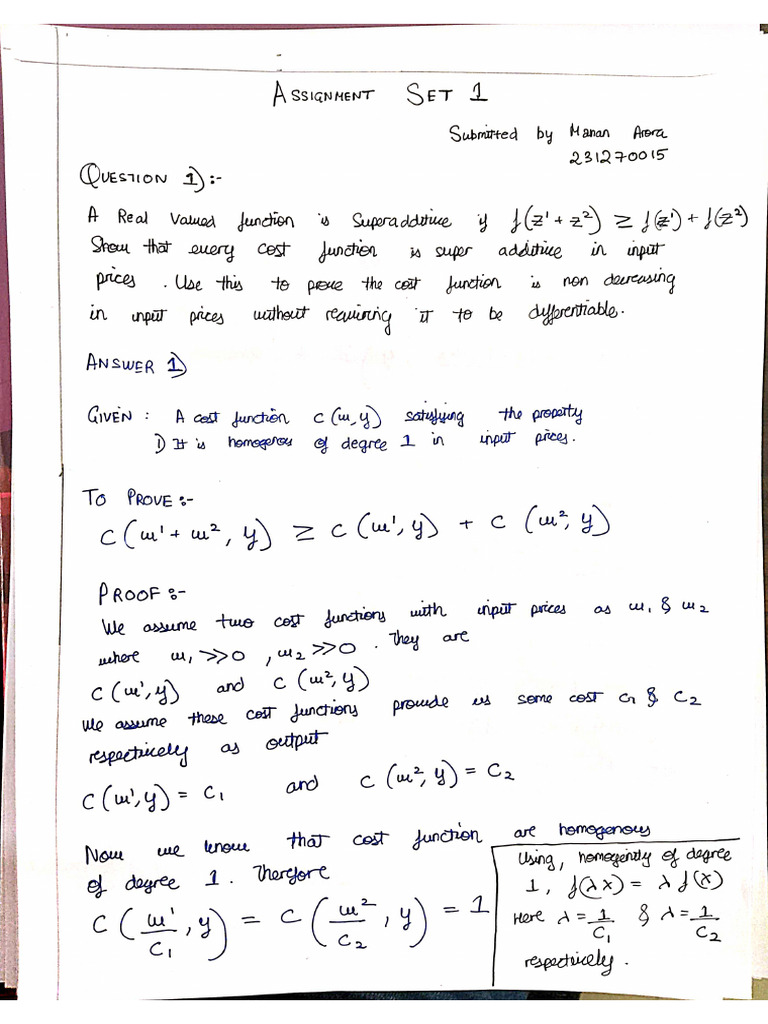 ASSIGNMENT SET 1
Submitted by Manan Arora
231270015
QUESTION 1):-
A Real Valued function is Superadditive if f(z¹ + z²) ≥ f(z¹) + f(z²)
Show that every cost function is super additive in input
prices. Use this to prove the cost function is non decreasing
in input prices without requiring it to be differentiable.
ANSWER 1)
GIVEN : A cost function C(w,y) satisfying the property
1) It is homogenous of degree 1 in input prices.
TO PROVE:-
C(w¹ + w², y) ≥ C(w¹, y) + C(w², y)
PROOF:-
We assume two cost functions with input prices as w₁ & w₂
where w₁ >> 0 , w₂ >> 0 . They are
C(w¹, y) and C(w², y)
We assume these cost functions provide us some cost C₁ & C₂
respectively as output
C(w¹, y) = C₁ and C(w², y) = C₂
Now we know that cost function are homogenous
of degree 1. Therefore
C(w¹/C₁, y) = C(w²/C₂, y) = 1
Using, homogenity of degree
1, f(λx) = λ f(x)
Here λ = 1/C₁ & λ = 1/C₂
respectively.